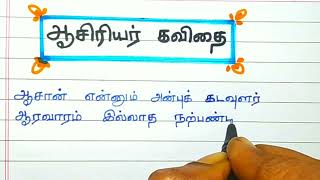 ஆசிரியர் கவிதை
ஆசான் என்னும் அன்புக் கடவுளர்
ஆரவாரம் இல்லாத